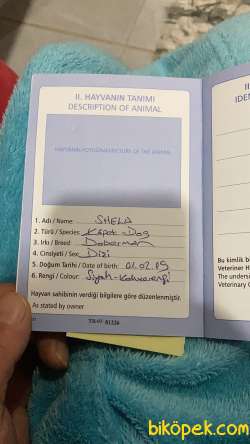 II. HAYVANIN TANIMI
DESCRIPTION OF ANIMAL
HAYVANIN FOTOĞRAFI/PICTURE OF THE ANIMAL
1. Adı / Name: SHELA
2. Türü / Species: Köpek - Dog
3. Irkı / Breed: Doberman
4. Cinsiyeti / Sex: Dişi
5. Doğum Tarihi / Date of birth: 01.02.19
6. Rengi / Colour: Siyah - Kahverengi
Hayvan sahibinin verdiği bilgilere göre düzenlenmiştir.
As stated by owner
II
IDE
Bu kimlik b
Veteriner H
The undersi
Veterinary O
biköpek.com